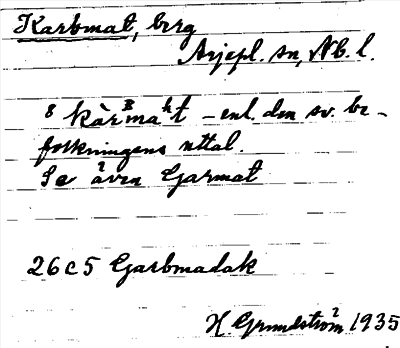 Karbmat, berg
Arjepl. sn, Nb. l.
8 kàrʙmaʰt - enl. den sv. be-
folkningens uttal.
Se även Garmat
26 C 5 Garbmadak
H Grundström 1935